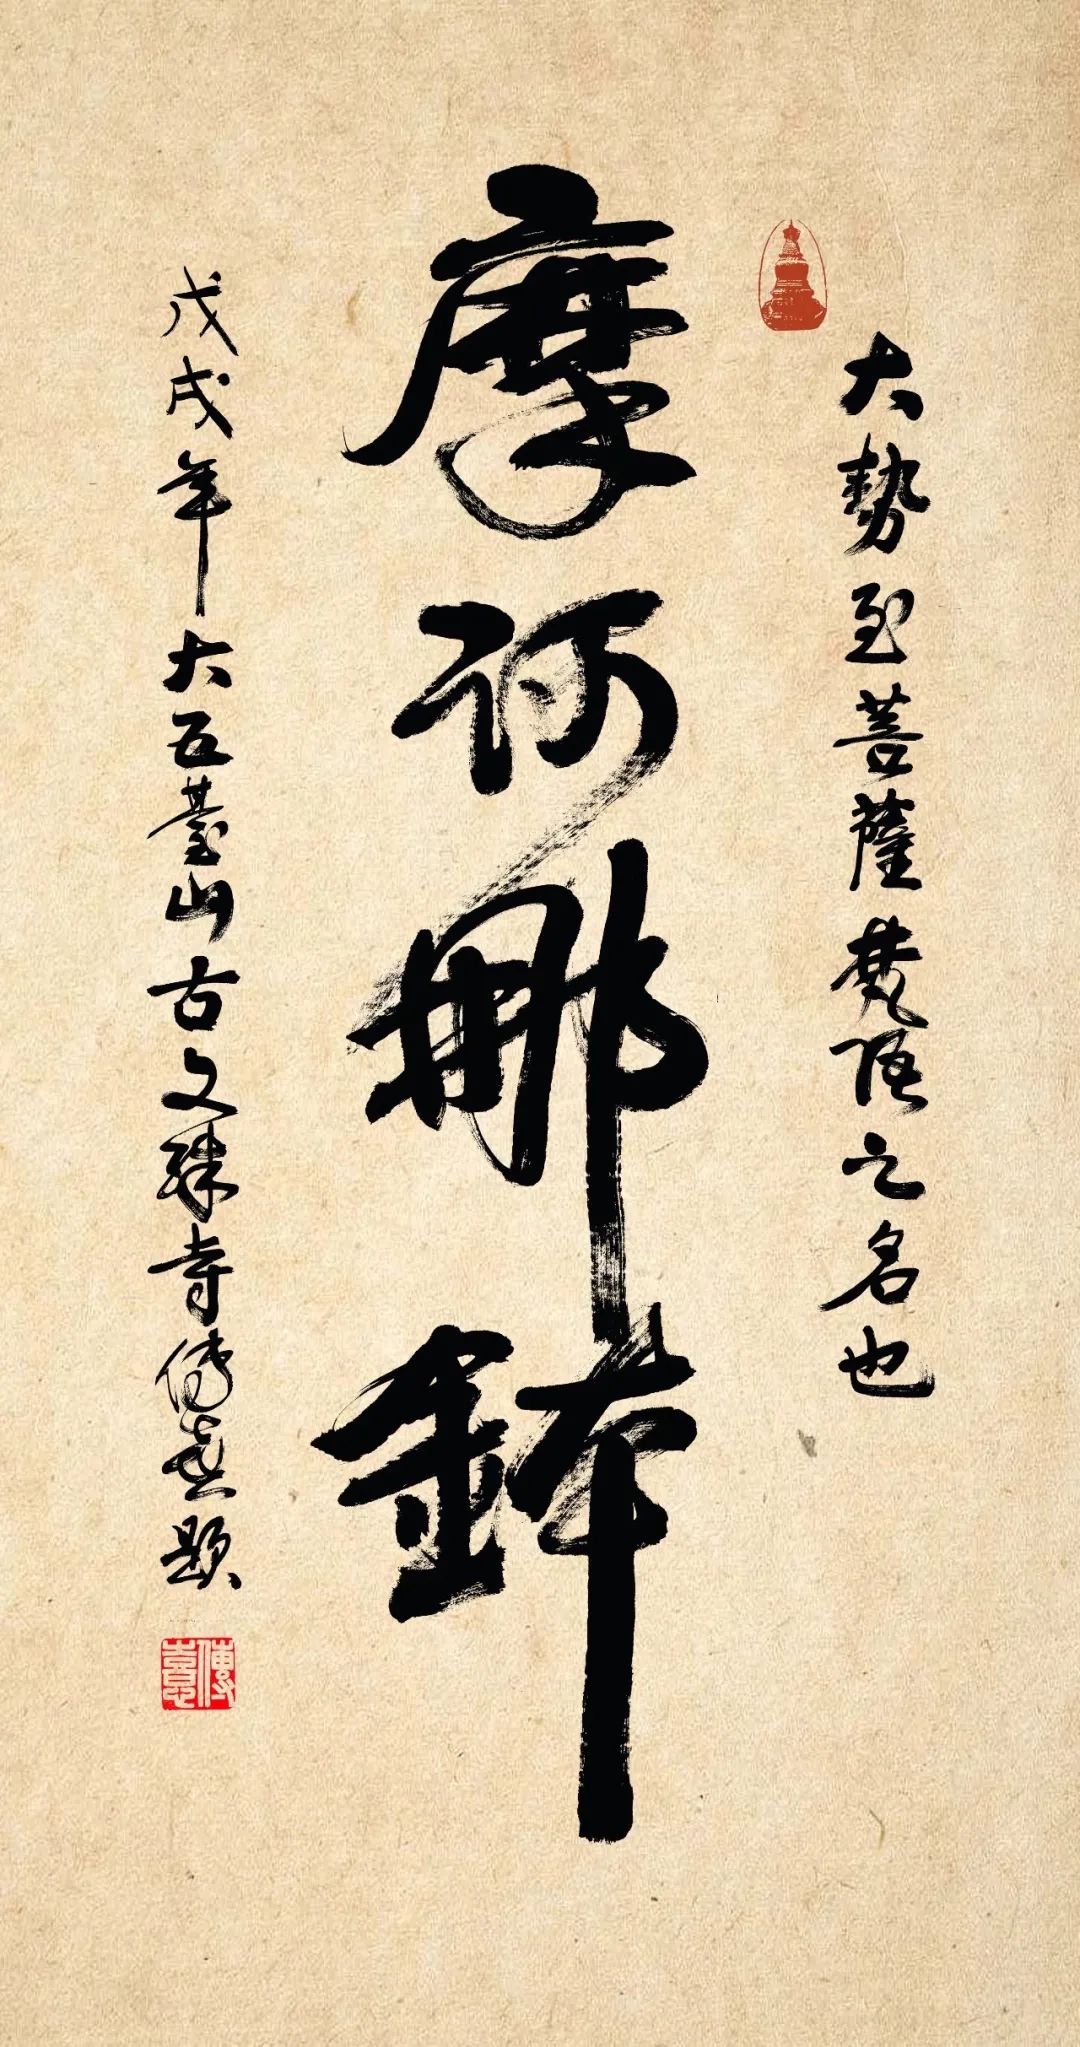 大勢至菩薩梵語之名也
摩訶那鉢
戊戌年大五臺山古文殊寺傳意題
傳意